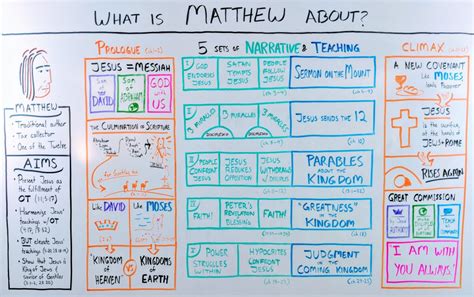 WHAT IS MATTHEW ABOUT?
MATTHEW
• Traditional author
• Tax collector
• One of the Twelve
AIMS
• Present Jesus as
the fulfillment of
OT
• Harmonize Jesus'
teachings w/ OT
• BUT elevate Jesus'
teachings
• Show that Jesus is
King of Jews &
savior of Gentiles
PROLOGUE
JESUS = MESSIAH
Son of DAVID
Son of ABRAHAM
GOD WITH US
THE CULMINATION OF SCRIPTURE
Like DAVID
Like MOSES
KINGDOM OF HEAVEN
KINGDOMS OF EARTH
5 SETS OF NARRATIVE & TEACHING
I
GOD ENDORSES JESUS
SATAN TEMPTS JESUS
PEOPLE FOLLOW JESUS
SERMON ON THE MOUNT
3 MIRACLES
3 MIRACLES
3 MIRACLES
JESUS SENDS THE 12
PEOPLE CONFRONT JESUS
JESUS REBUKES OPPOSITION
JESUS WITHDRAWS
PARABLES ABOUT THE KINGDOM
FAITH!
PETER'S REVELATION & BLESSING
FAITH!
"GREATNESS" IN THE KINGDOM
POWER STRUGGLES WITHIN
HYPOCRITES CONFRONT JESUS
JUDGMENT & THE COMING KINGDOM
CLIMAX
A NEW COVENANT
Like MOSES
JESUS
is the
sacrifice, at the
hands of
JEWS + ROME
RISES AGAIN
GREAT COMMISSION
I AM WITH
YOU ALWAYS!